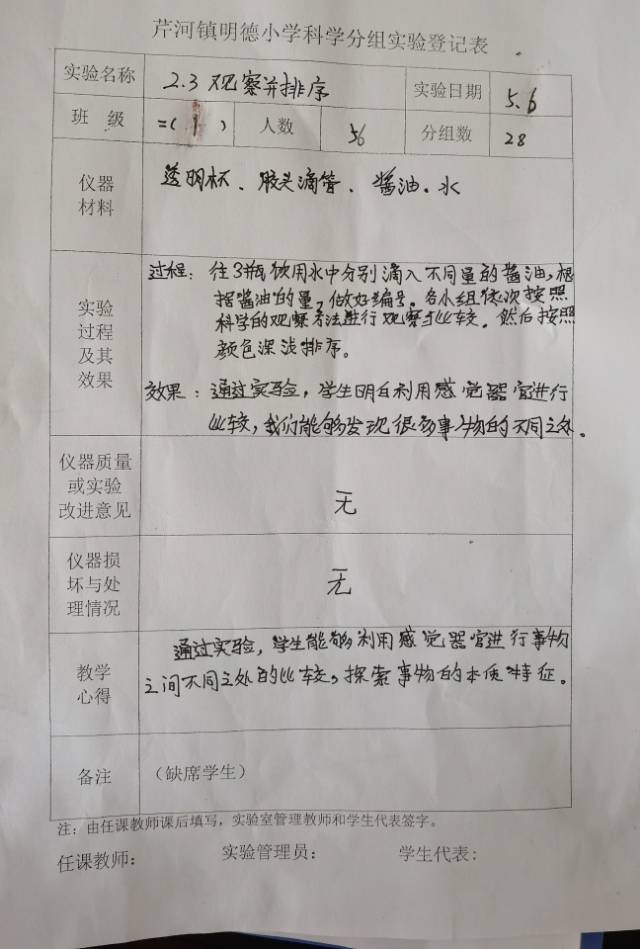 芹河镇明德小学科学分组实验登记表
实验名称 2.3 观察并排序 实验日期 5.6
班 级 二(1) 人数 56 分组数 28
仪器材料 透明杯、胶头滴管、酱油、水
实验过程及其效果
过程：往3瓶饮用水中分别滴入不同量的酱油，根
据酱油的量，做好编号。各小组依次按照
科学的观察方法进行观察与比较。然后按照
颜色深浅排序。
效果：通过实验，学生明白利用感觉器官进行
比较，我们能够发现很多事物的不同之处。
仪器质量或实验改进意见 无
仪器损坏与处理情况 无
教学心得
通过实验，学生能够利用感觉器官进行事物
之间不同之处的比较，探索事物的本质特征。
备注 （缺席学生）
注：由任课教师课后填写，实验室管理教师和学生代表签字。
任课教师： 实验管理员： 学生代表：